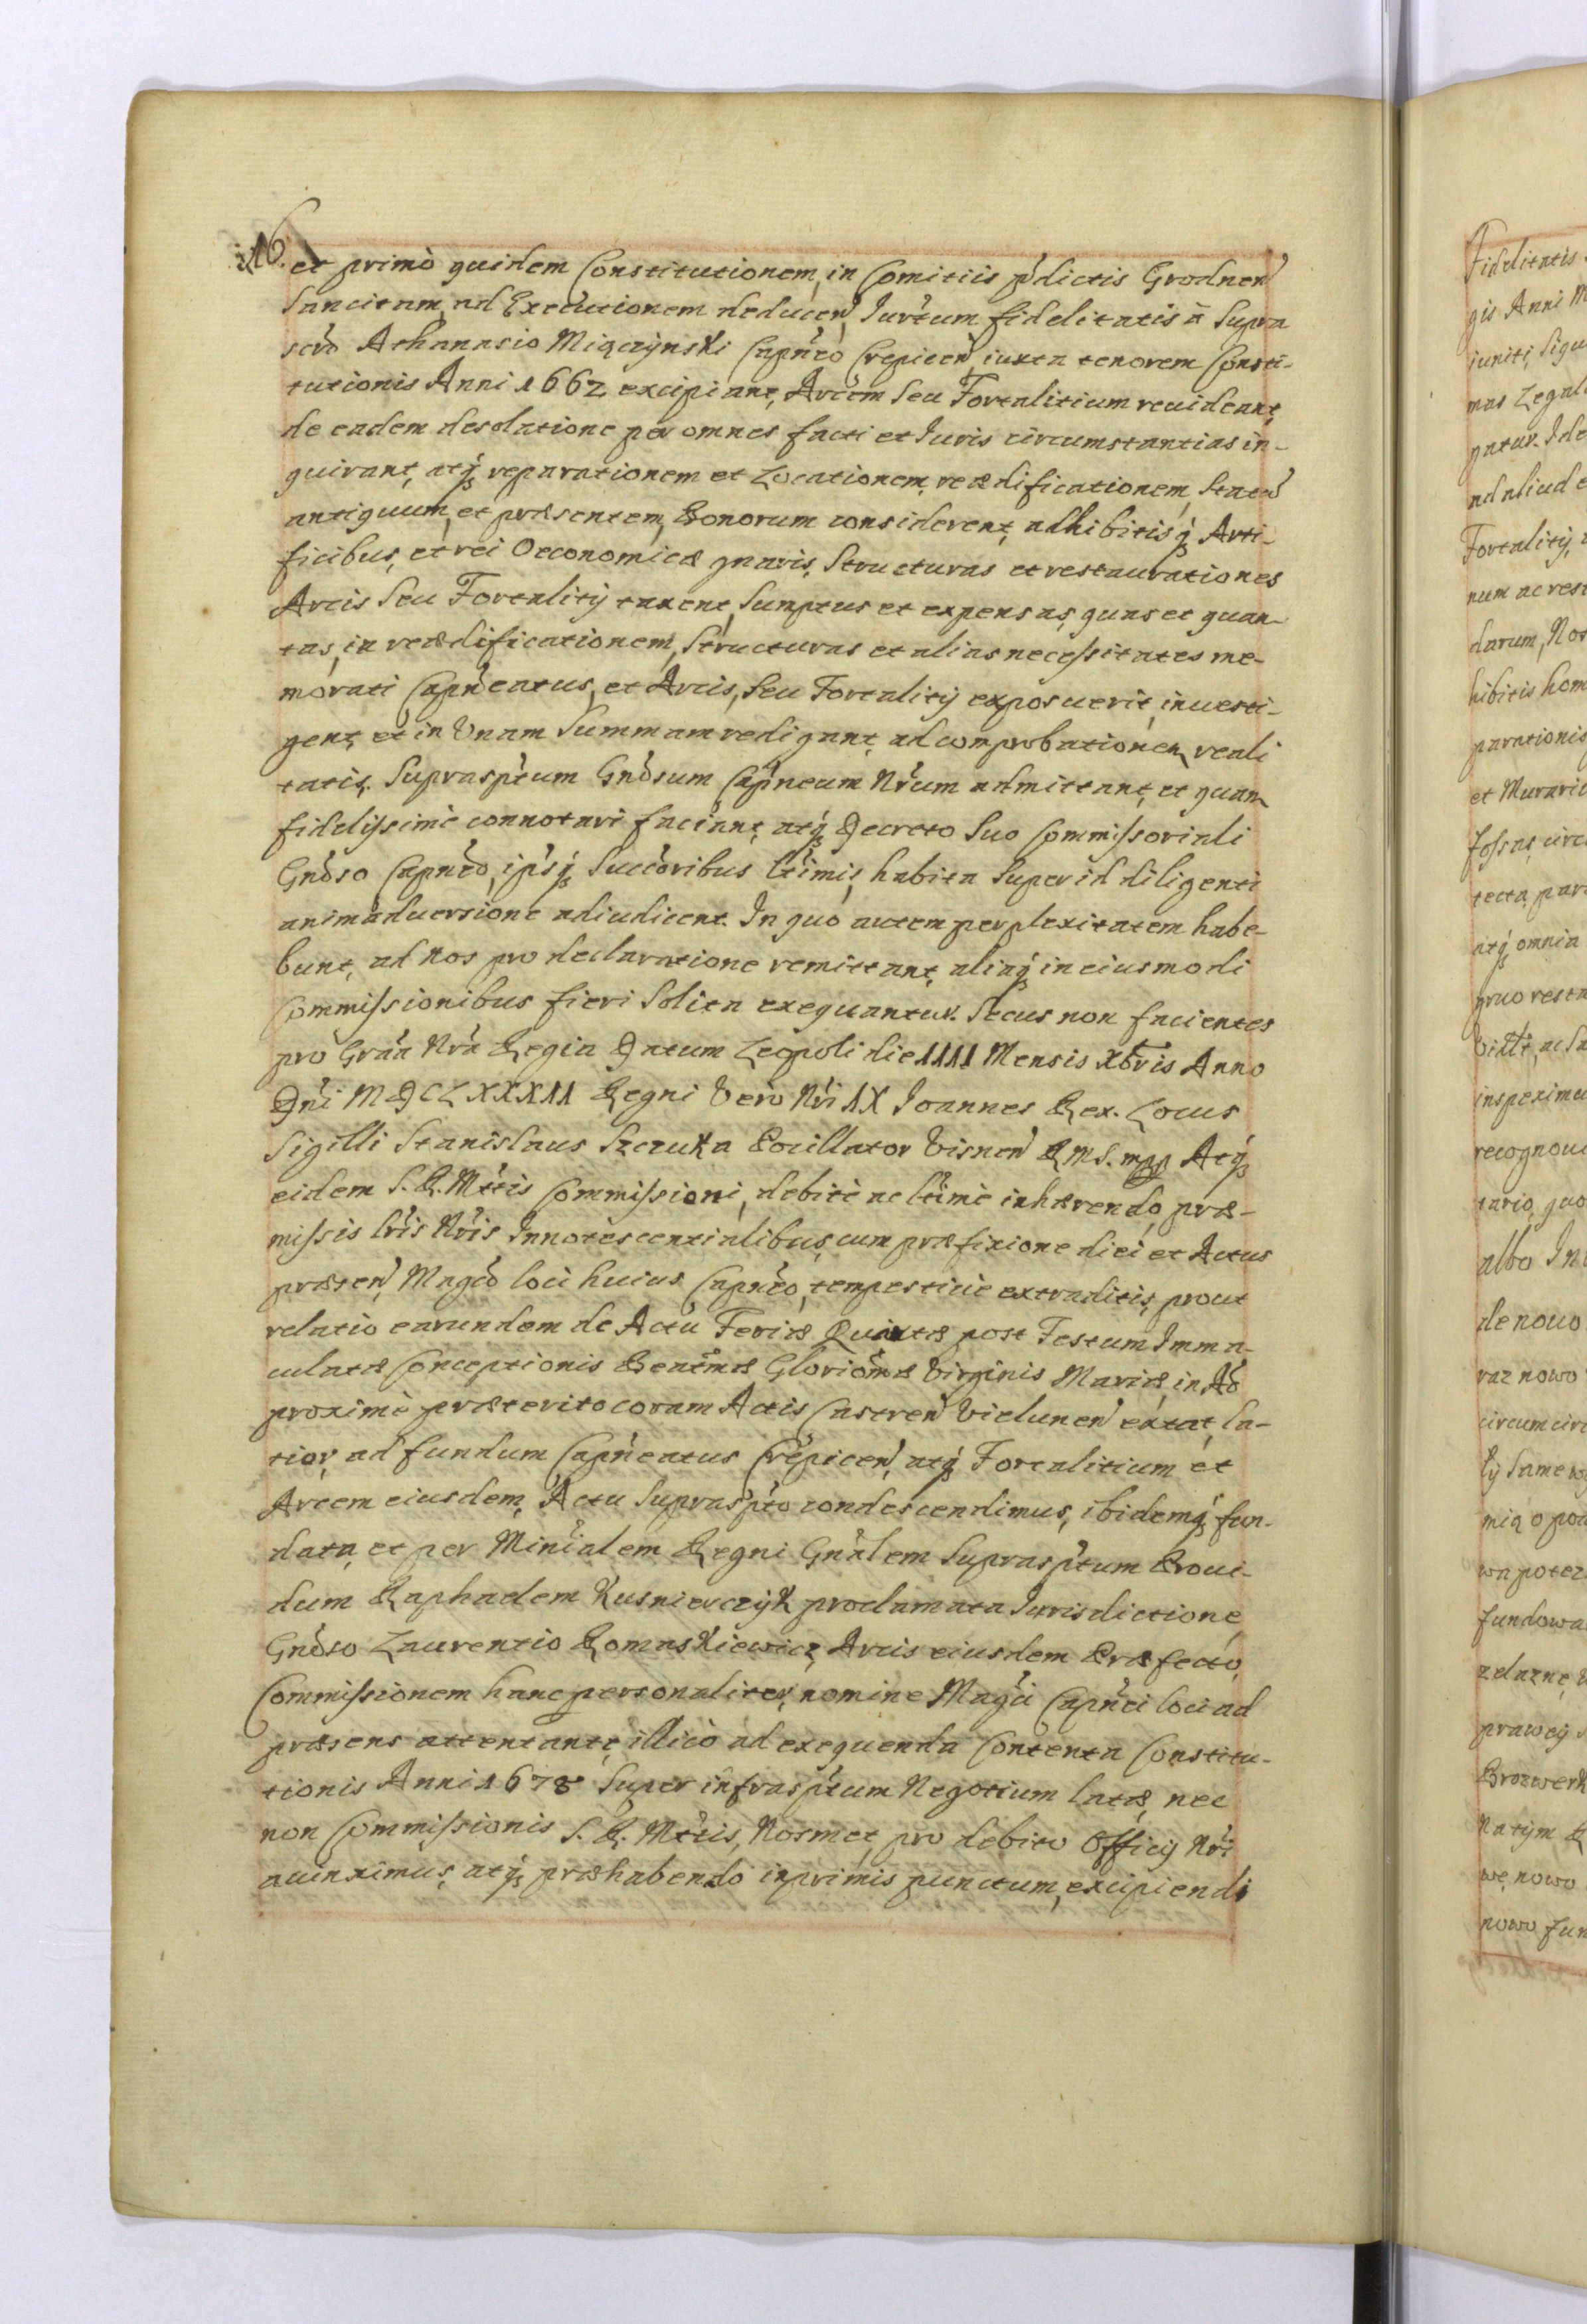 16.
et primò quidem Constitutionem, in Comitiis pdictis Grodnen
Sancitam, ad Executionem deducen, Jurtum fidelitatis à Supra
scro Athanasio Miączynski Capneo Crepicen, iuxta tenorem Consti-
tutionis Anni 1662 excipiant, Arcem Seu Fortalitium reuideant,
de eadem desolatione per omnes facti et Iuris circumstantias in-
quirant, atq reparationem et Locationem, reædificationem, Statu
antiquum, et præsentem, Bonorum considerent, adhibitisq Arti-
ficibus, et rei Oeconomicæ gnaris, Structuras et restaurationes
Arcis Seu Fortalitij taxent, Sumptus et expensas, quas et quan-
tas, in reædificationem, Structuras et alias necessitates me-
morati Capneatus, et Arcis, Seu Fortalitij exposuerit, inuesti-
gent, et in Unam Summam redigant, ad comprobationem reali
tatis, Suprasptum Gnosum Capneum Nrum admittant, et quam
fidelissimè connotari faciant, atq Decreto Suo Commissoriali
Gnoso Capneo, ipsiq Succoribus ltimis, habita Super id diligenti
animaduersione adiudicent. In quò autem perplexitatem habe-
bunt, ad Nos pro declaratione remittant, aliaq in eiusmodi
Commissionibus fieri Solita exequantur. Secus non facientes
pro Gràa Nrà Regia Datum Leopoli die 1111 Mensis Xbris Anno
Dni MDCLXXXII Regni Vero Nri IX Ioannes Rex. Locus
Sigilli Stanislaus Szczuka Pocillator Visnen RMS. mpp Atq
eidem S. R. Mttis Commissioni, debitè ac ltimè inhærendo, præ-
missis lris Nris Innotescentialibus, cum præfixione diei et Actus
præsen, Magco loci huius Capneo, tempestiuè extraditis, prout
relatio earundem de Actu Feriæ Quintæ post Festum Imma-
culatæ Conceptionis Beatmæ Gloriomæ Virginis Mariæ, in Ao
proximè præterito coram Actis Castren Vielunen extat, la-
tior, ad fundum Capneatus Crepicen, atq Fortalitium et
Arcem eiusdem, Actu Supraspto condescendimus, ibidemq fun-
data, et per Minialem Regni Gnalem Suprasptum Proui-
dum Raphaelem Kusnierczyk proclamata Iurisdictione,
Gnoso Laurentio Romaskiewicz, Arcis eiusdem Præfecto,
Commissionem hanc personaliter, nomine Magci Capnei loci ad
præsens attentante, illicò ad exequenda Contenta Constitu-
tionis Anni 1678 Super infrasptum Negotium latæ, nec
non Commissionis S. R. Mttis, Nosmet, pro debito Officij Nri
auinximus, atq præhabendo inprimis punctum, excipiendi
Fidelitatis
gis Anni M
iuniti, Sigu
mas Legal
patur. Ide
ad aliud e
Fortalitij,
num ac rest
darum, Nos
hibitis hom
parationis
et Murario
fossas, circ
tecta, par
atq omnia
inspeximu
recognoui
tario, quo
albo In
de nouo
raz nowo
circumcirc
mią o po
wa potez
fundowa
zelazne,
prawey
Natym
wę nowo
nowo fun